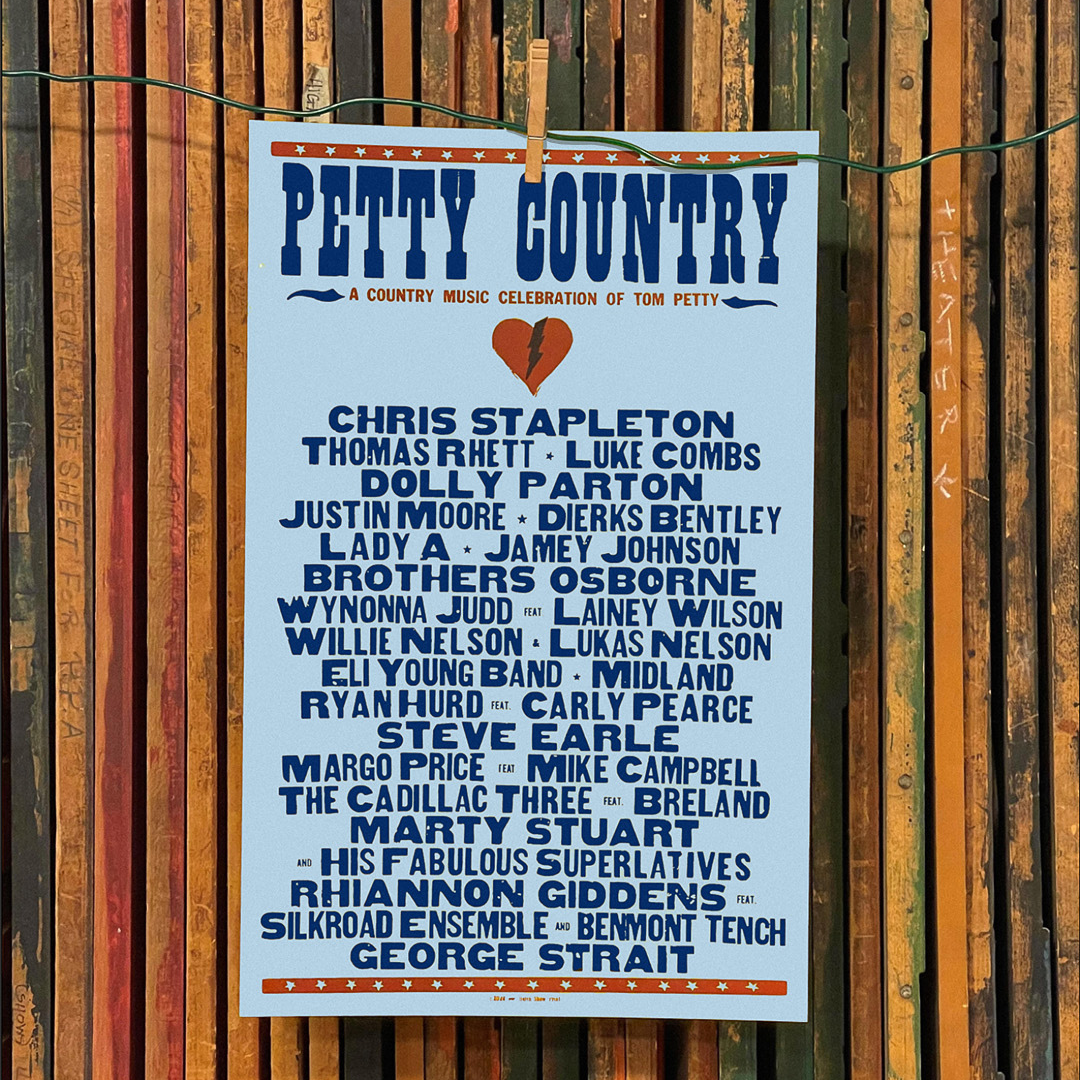 PETTY COUNTRY
A COUNTRY MUSIC CELEBRATION OF TOM PETTY
CHRIS STAPLETON
THOMAS RHETT ★ LUKE COMBS
DOLLY PARTON
JUSTIN MOORE ★ DIERKS BENTLEY
LADY A ★ JAMEY JOHNSON
BROTHERS OSBORNE
WYNONNA JUDD FEAT LAINEY WILSON
WILLIE NELSON & LUKAS NELSON
ELI YOUNG BAND ★ MIDLAND
RYAN HURD FEAT. CARLY PEARCE
STEVE EARLE
MARGO PRICE FEAT MIKE CAMPBELL
THE CADILLAC THREE FEAT. BRELAND
MARTY STUART
AND HIS FABULOUS SUPERLATIVES
RHIANNON GIDDENS FEAT.
SILKROAD ENSEMBLE AND BENMONT TENCH
GEORGE STRAIT
THEATER
SPECIAL ONE SHEET FOR